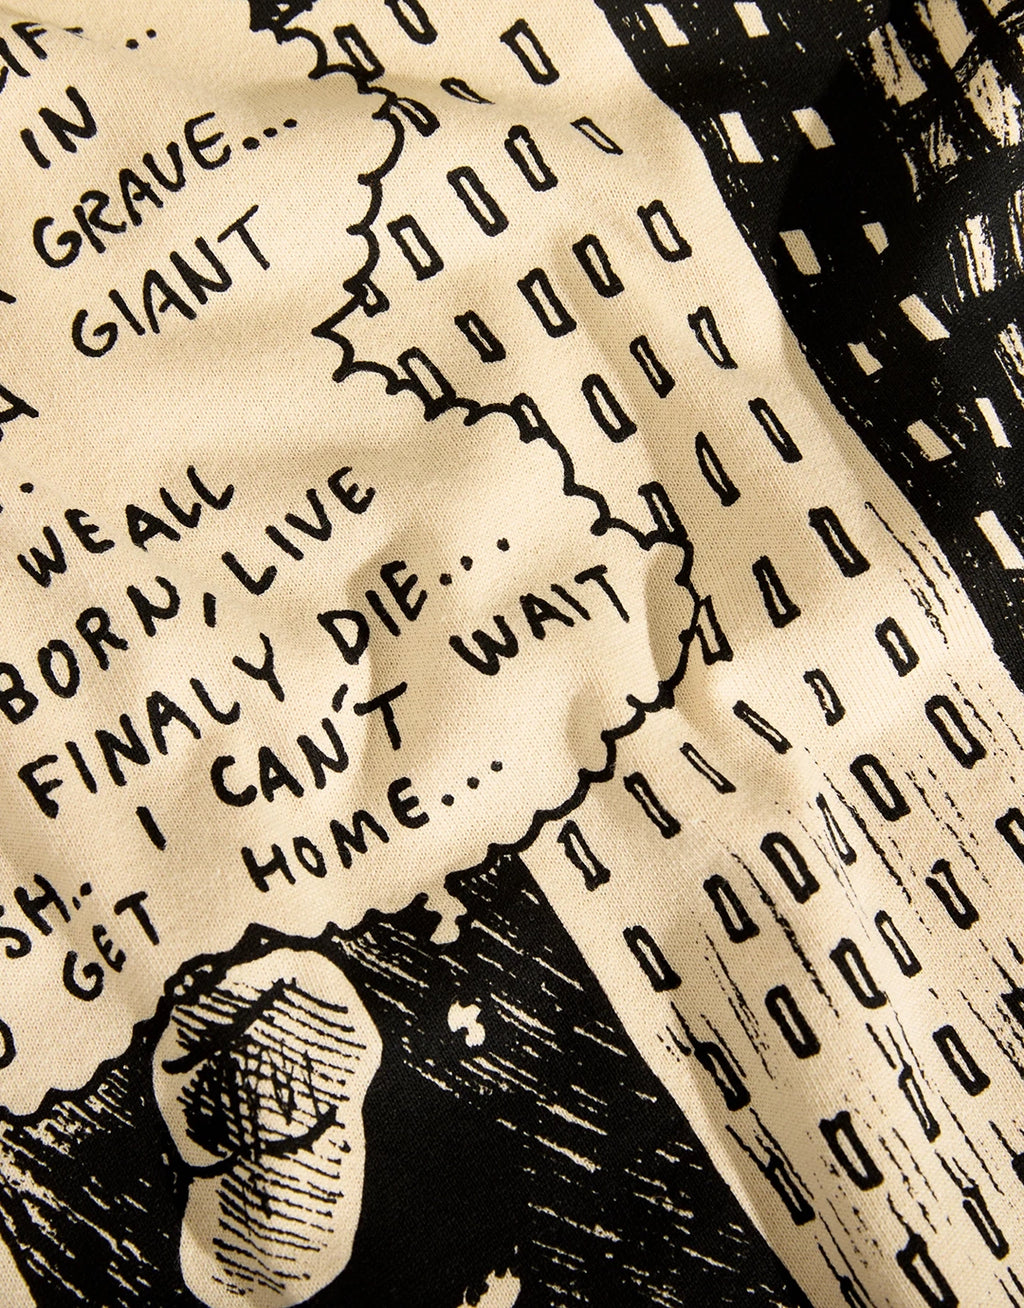 IN
GRAVE...
GIANT
A
WE ALL
BORN, LIVE
FINALY DIE...
I CAN'T WAIT
SH..
GET HOME...